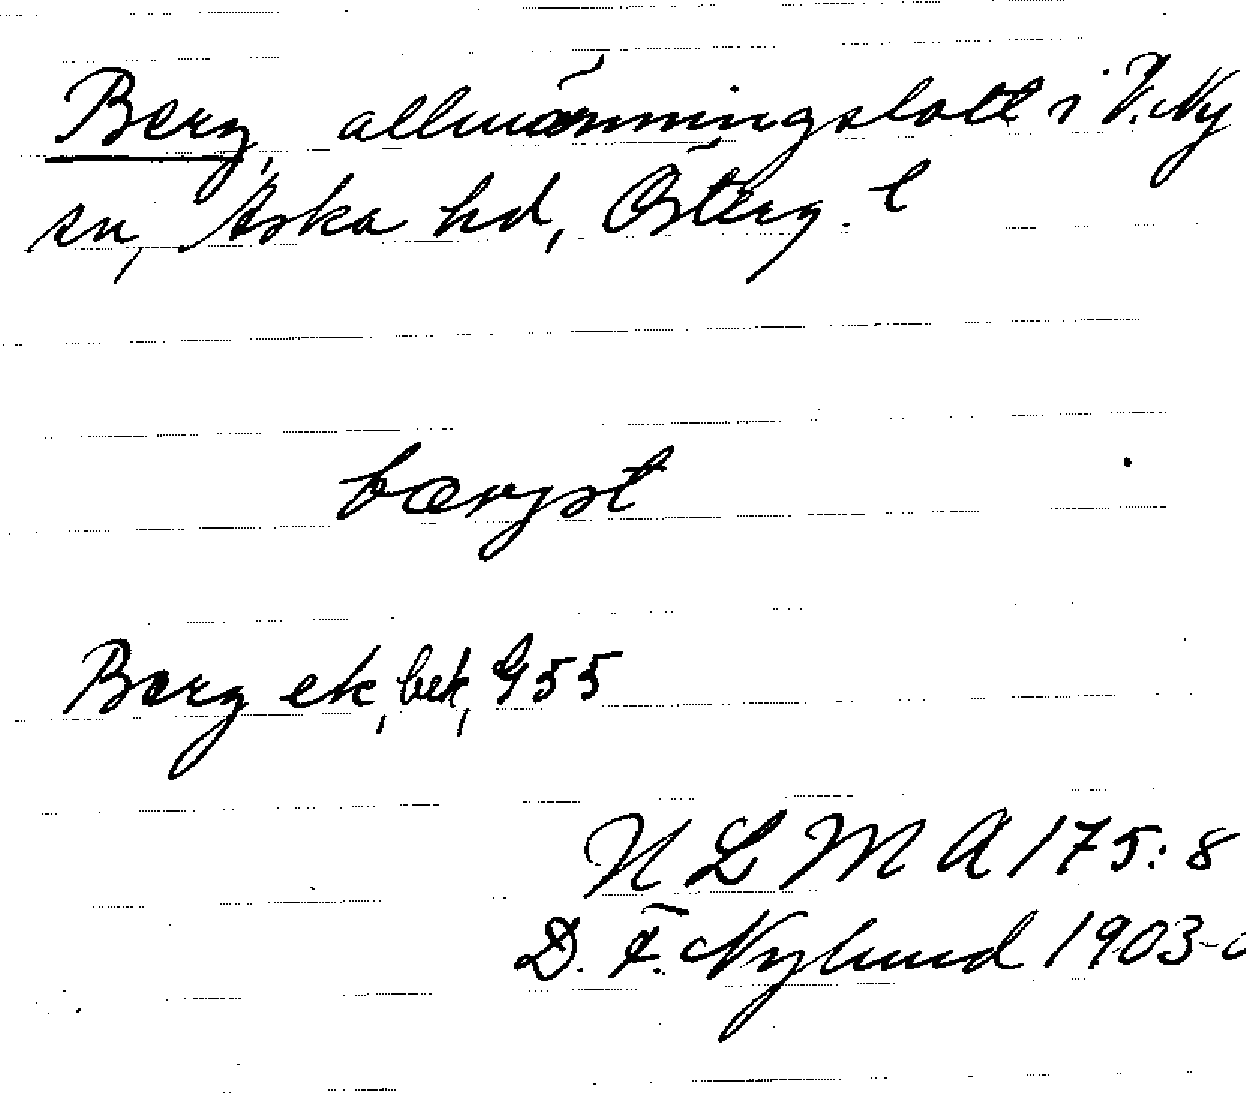 Berg, allmänningslott i V. Ny
sn, Aska hd, Österg. l
bærgst
Berg ek, bek, G55
N L M A 175:8
D. F. Nylund 1903-0